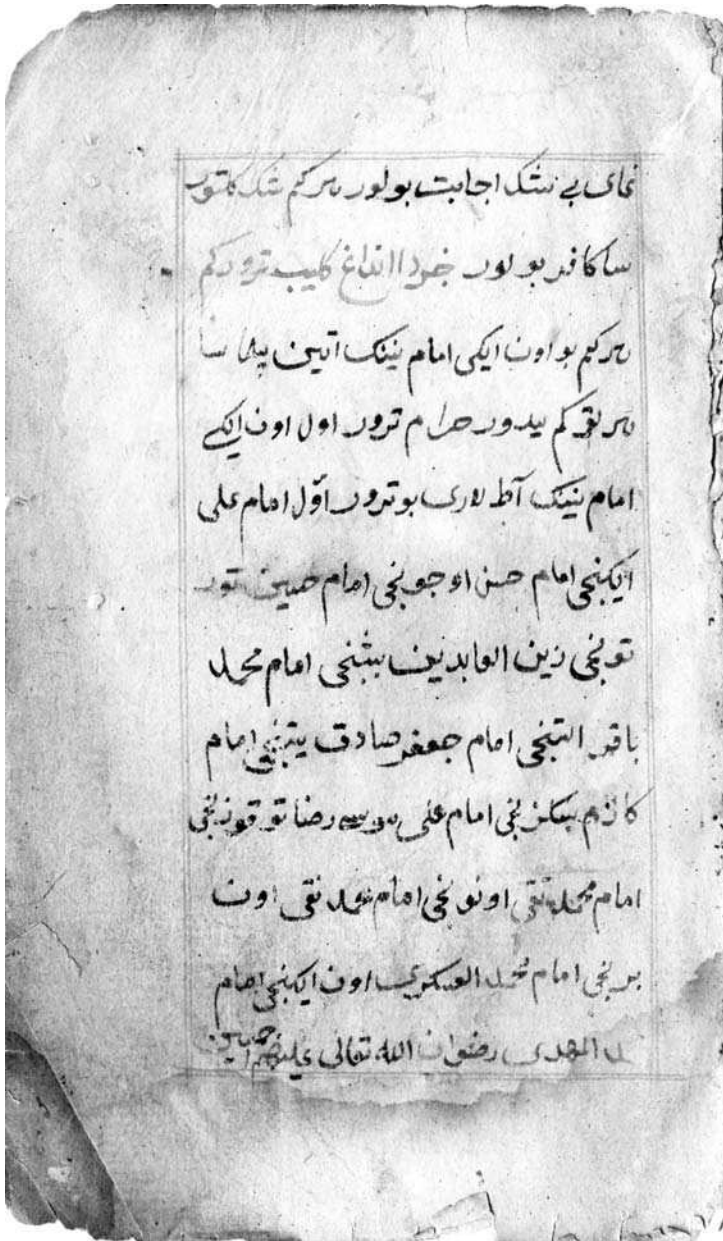 عای بی شک اجابت بولور هر کیم شک کلتور
سا کافر بولور خبردا انداغ کلیب ترور کم
هر کیم بو اون ایکی امام نینک اتین بیلماسا
هر لقم کم ییدور حرام ترور اول اون ایکی
امام نینک آط لاری بو ترور اوّل امام علی
ایکینجی امام حسن اوجونجی امام حسین تور
تونجی زین العابدین بیشنجی امام محمد
باقر التینجی امام جعفر صادق یتینجی امام
کازم سکزنجی امام علی موسی رضا توقوزنجی
امام محمد تقی اونونجی امام محمد نقی اون
برنجی امام محمد العسکری اون ایکینجی امام
محمد المهدی رضوان الله تعالی علیهم اجمعین